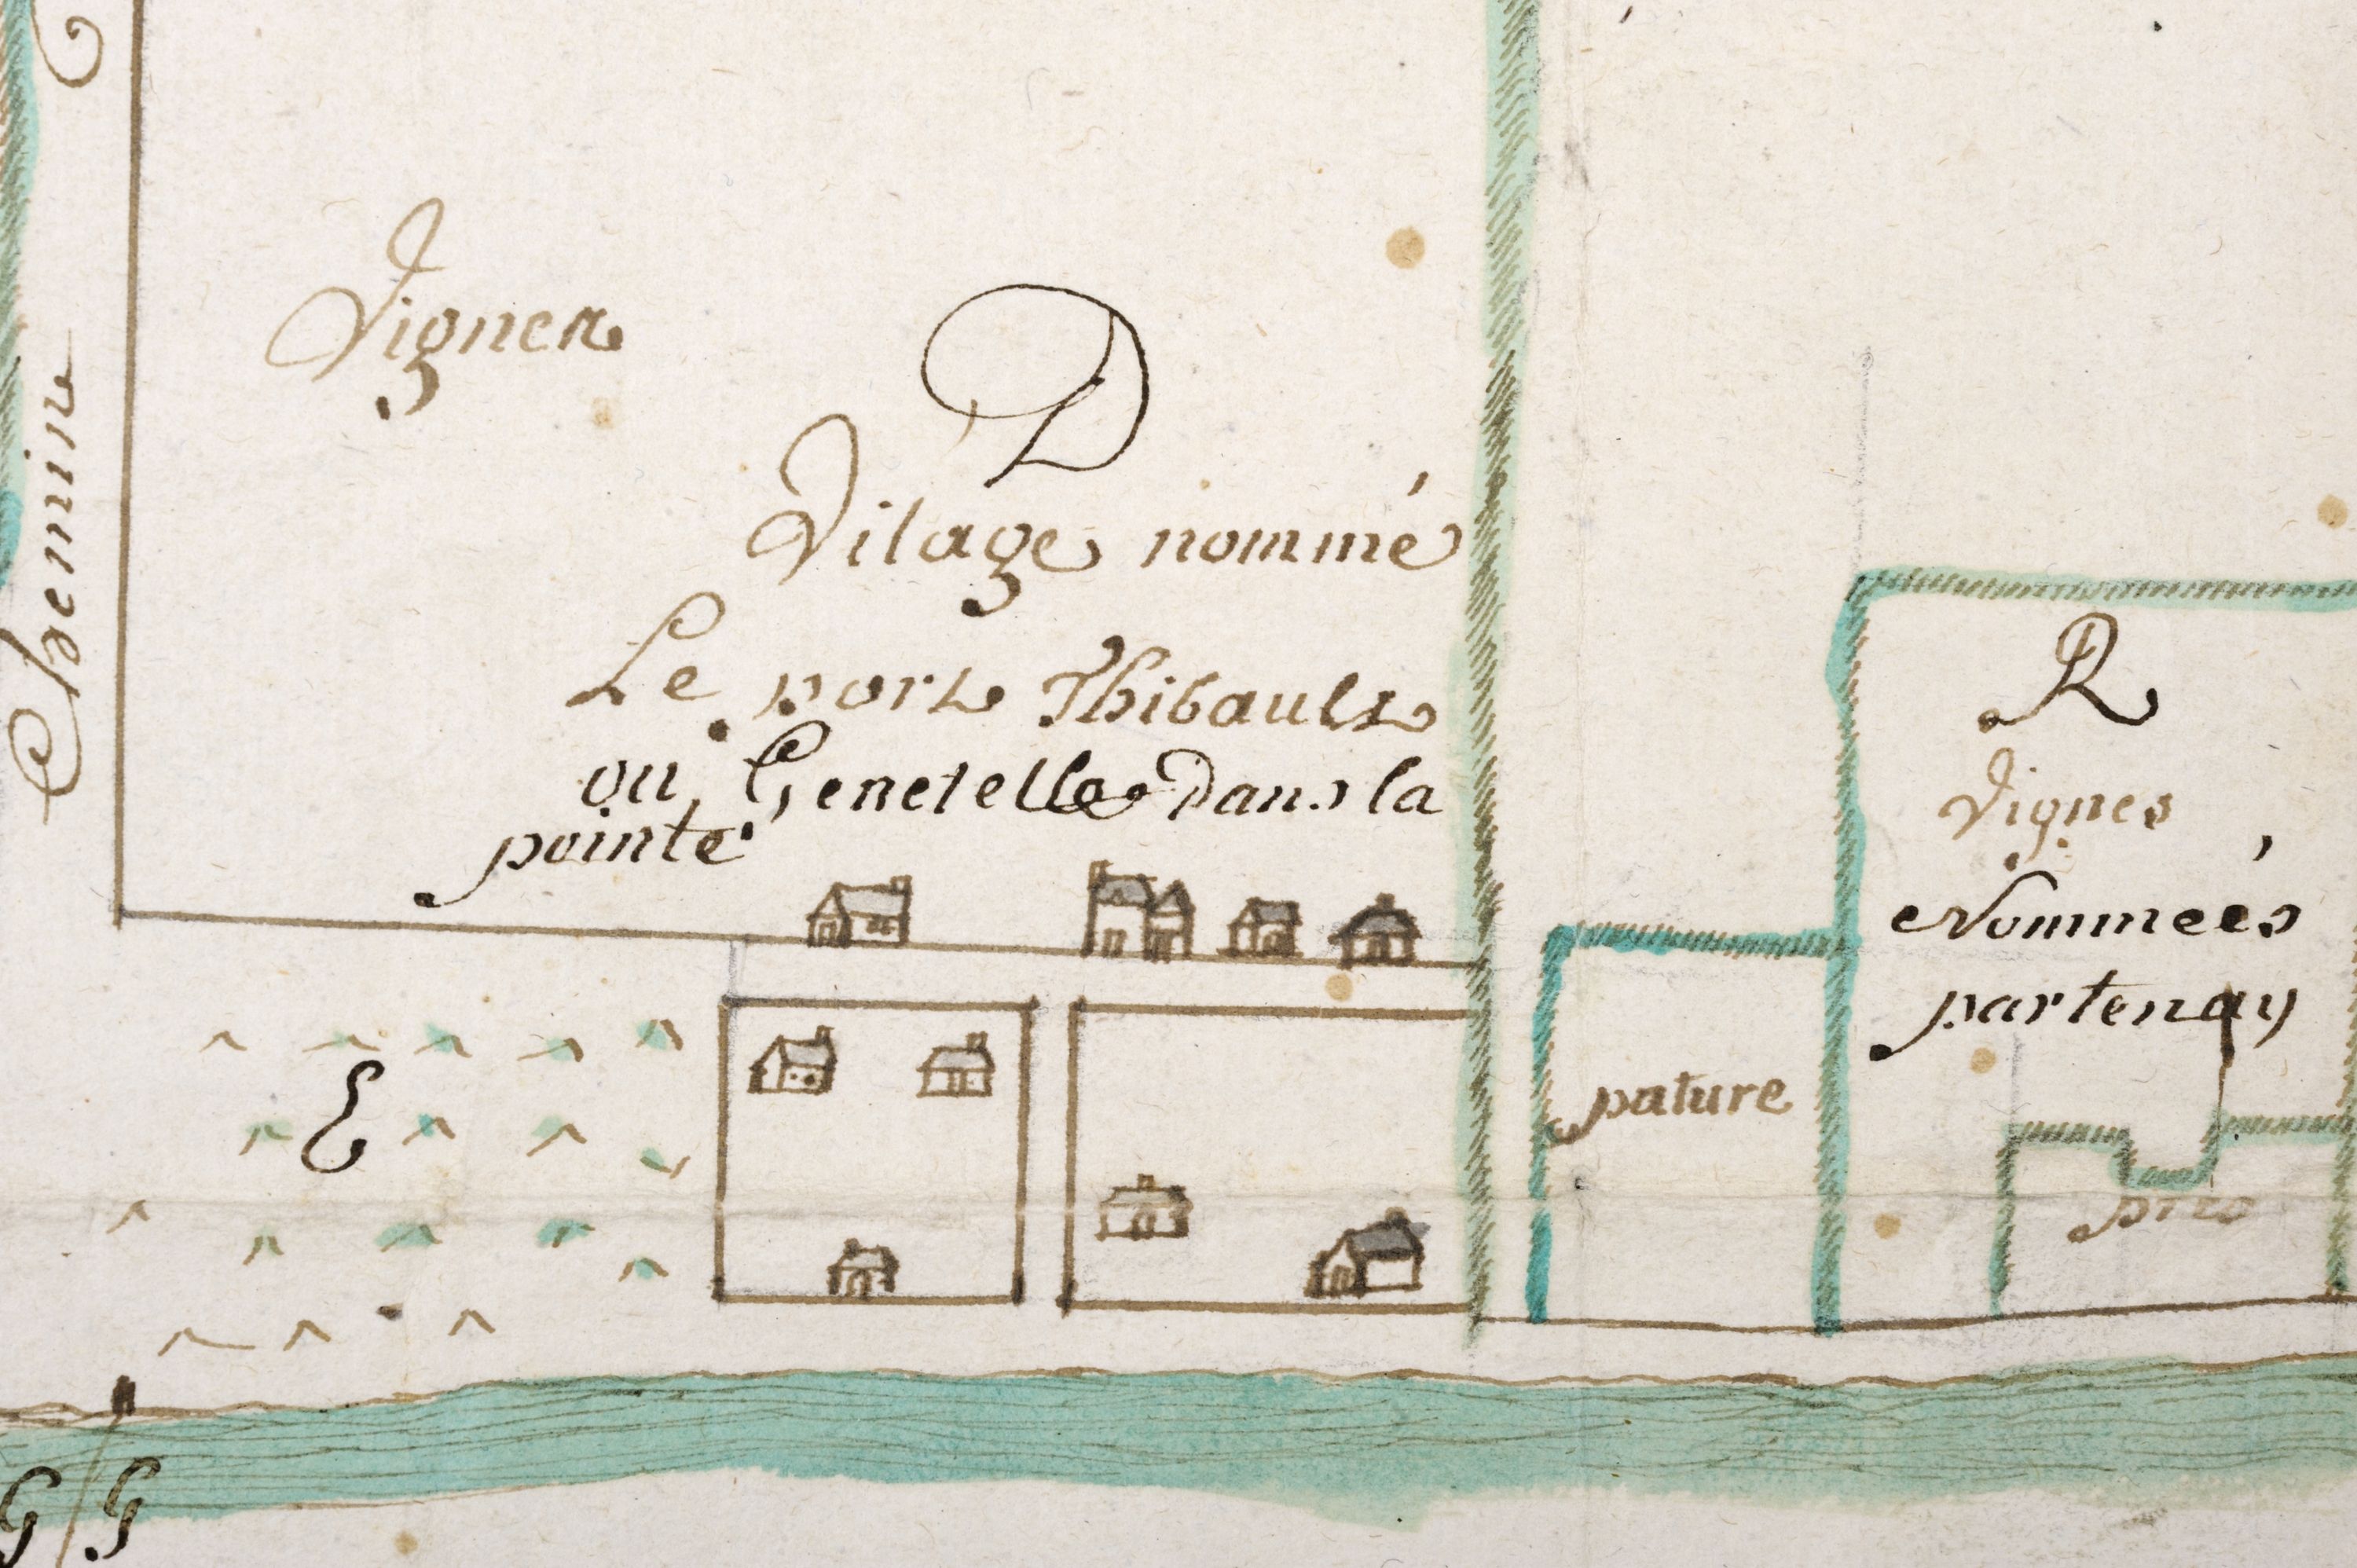 Chemin
Vignes
D
Vilage nommé
Le port Thibault
ou Genetelle Dans la
pointe
E
R
Vignes
Nommeés
partenay
pature
prés
G G